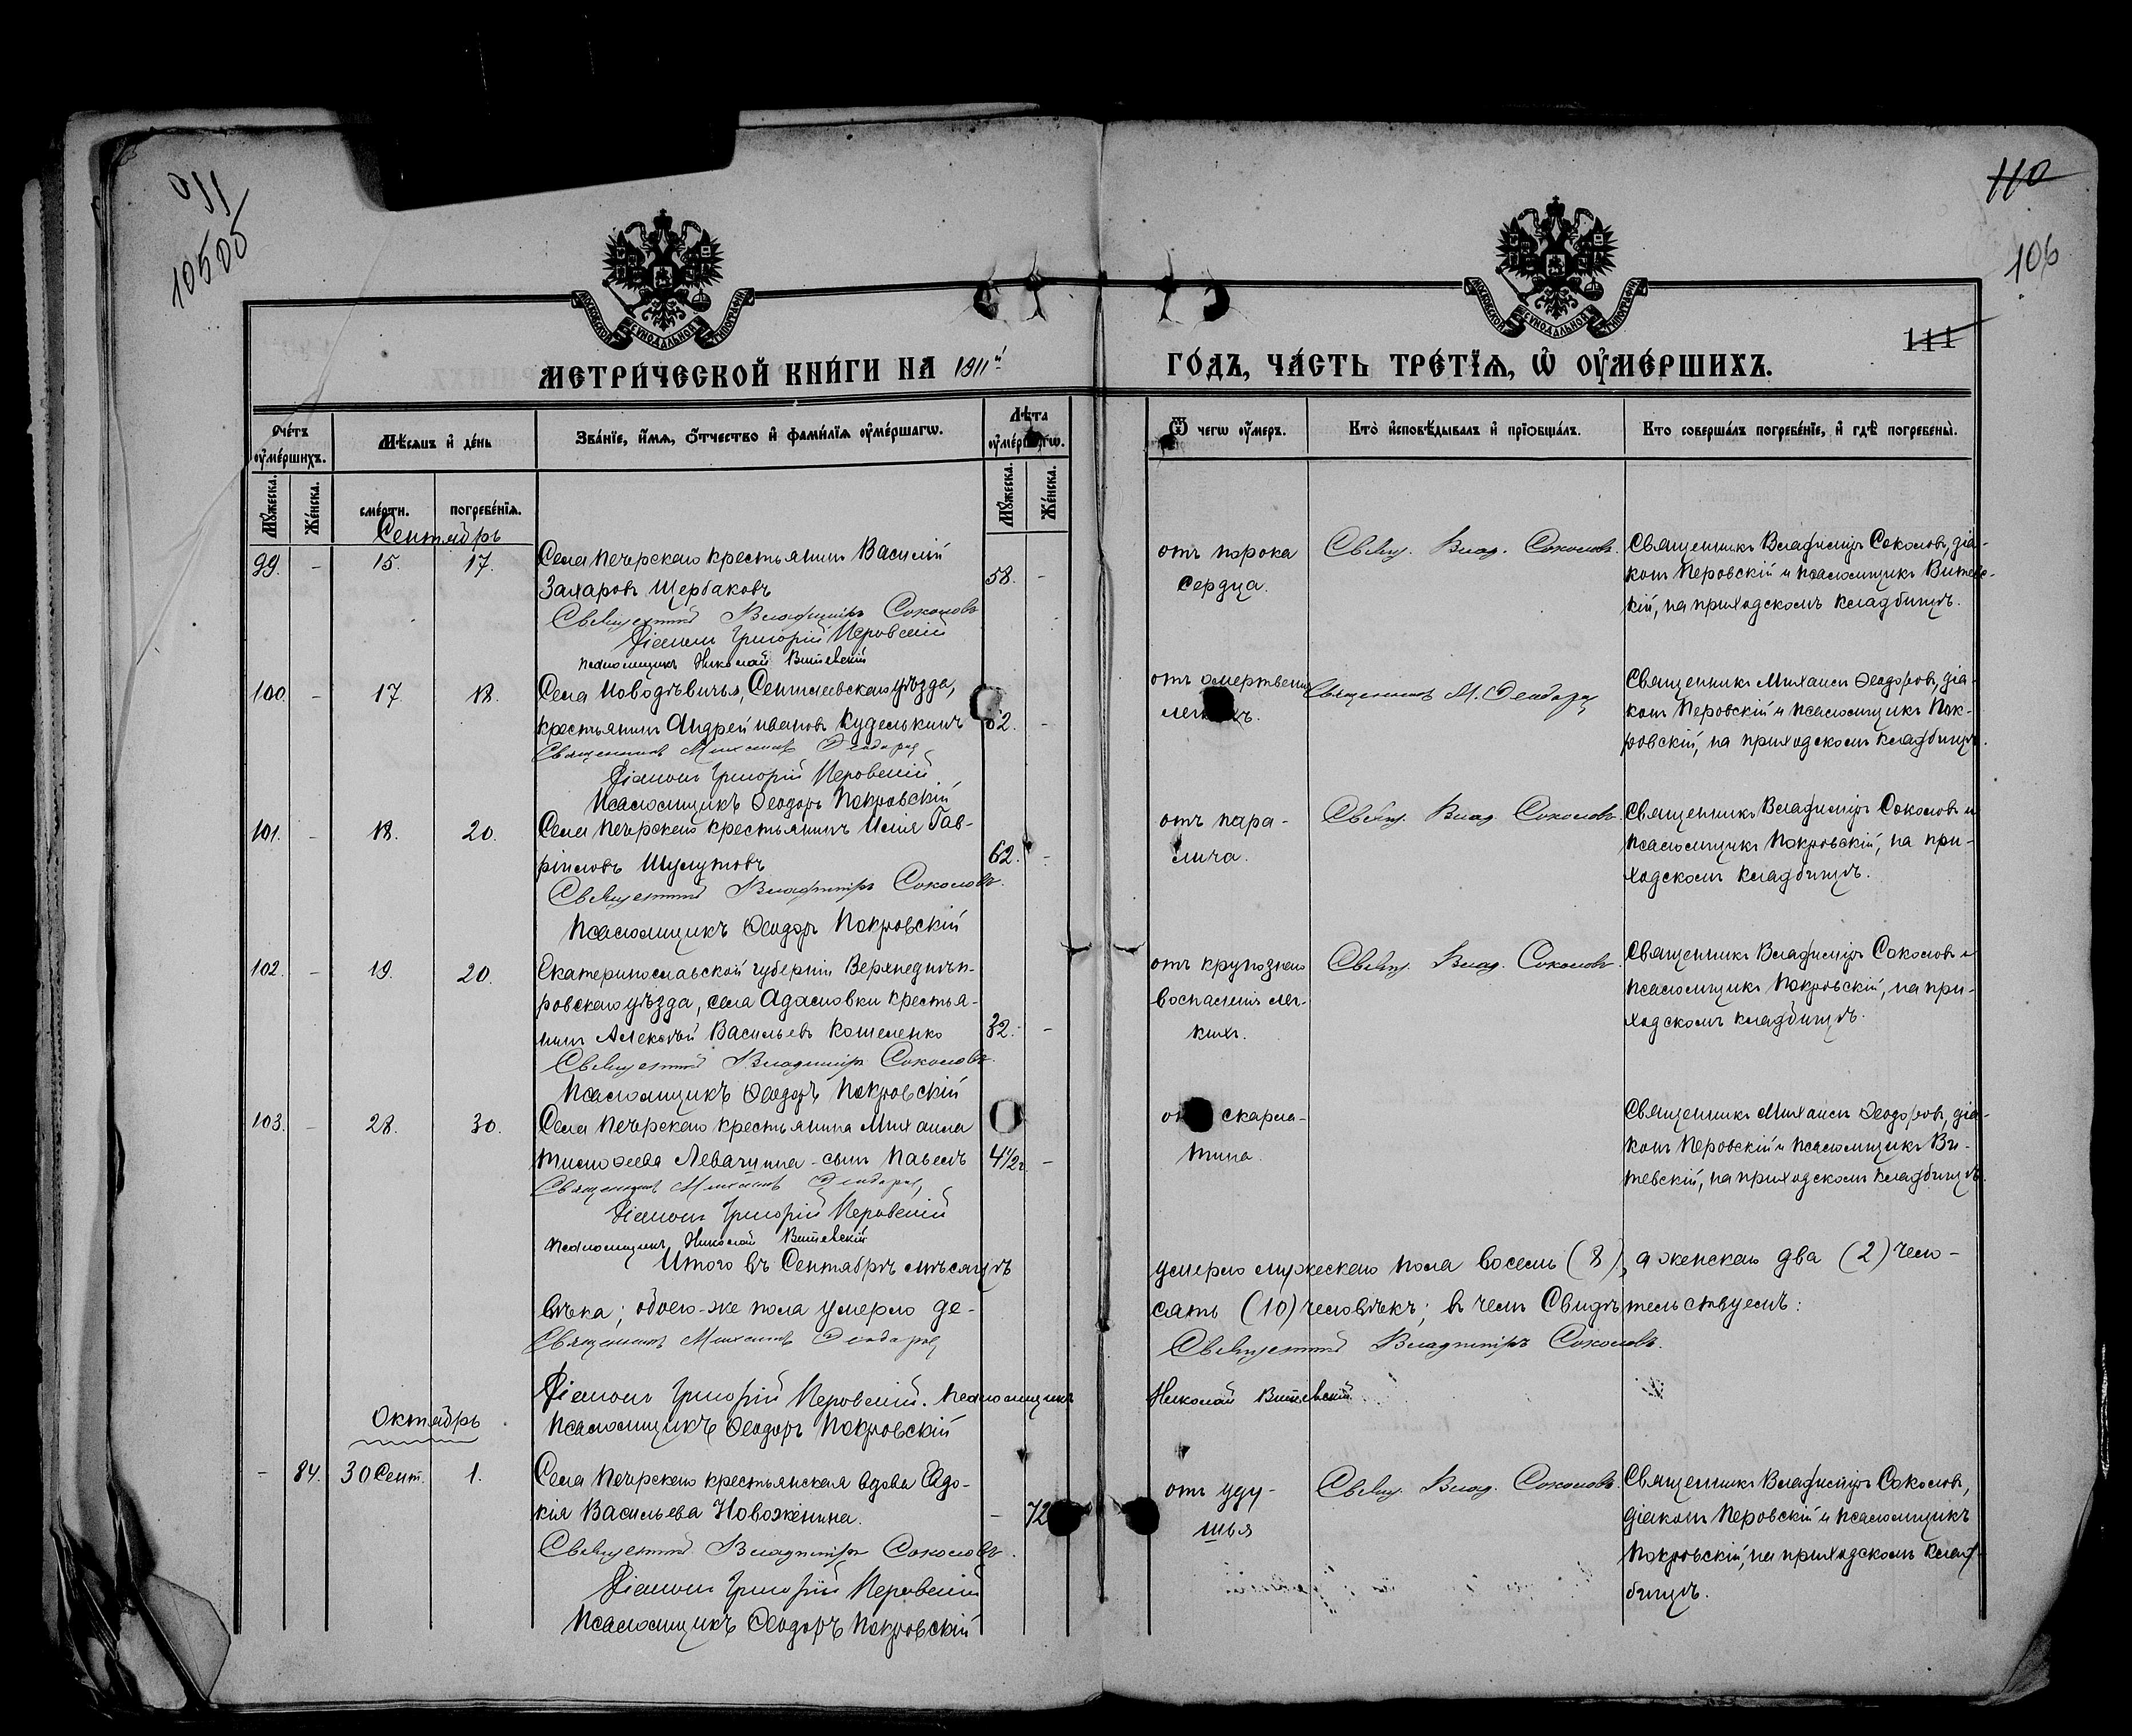 110
106
111
110
105об
МОСКОВСКОЙ СѴНОДАЛЬНОЙ ТИПОГРАФІИ
МОСКОВСКОЙ СѴНОДАЛЬНОЙ ТИПОГРАФІИ
МЕТРИ́ЧЕСКОЙ КНИ́ГИ НА 1911й ГО́ДЪ, ЧА́СТЬ ТРЕ́ТЇѦ, Ѽ ОУ҆МЕ́РШИХЪ.
Сче́тъ оу҆ме́ршихъ.
Мѣ́сѧцъ и҆ де́нь
Зва́нїе, и҆́мѧ, ѻ҆́тчество и҆ фами́лїѧ оу҆ме́ршагѡ.
Лѣ́та оу҆ме́ршагѡ.
Ѿ чегѡ̀ оу҆́меръ.
Кто̀ и҆сповѣ́дывалъ и҆ прїѡбща́лъ.
Кто соверша́лъ погребе́нїе, и҆ гдѣ̀ погребены̀.
Мꙋ́жеска.
Же́нска.
сме́рти.
погребе́нїѧ.
Мꙋ́жеска.
Же́нска.
Сентябрь
99. - 15. 17. Села Печерскаго крестьянинъ Василій
Захаровъ Щербаковъ 58. -
Священникъ Владиміръ Соколовъ
Діаконъ Григорій Перовскій
Псаломщикъ Николай Витевскій
отъ порока
сердца.
Свящ. Влад. Соколовъ.
Священникъ Владиміръ Соколовъ, діа-
конъ Перовскій и псаломщикъ Витевс-
кій, на приходскомъ кладбищѣ.
100. - 17. 18. Села Новодѣвичья, Сенгилеевскаго уѣзда,
крестьянинъ Андрей Ивановъ Куделькинъ 62. -
Священникъ Михаилъ Ѳеодоровъ
Діаконъ Григорій Перовскій
Псаломщикъ Ѳеодоръ Покровскій
отъ омертвенія
легкихъ.
Священникъ М. Ѳеодоровъ
Священникъ Михаилъ Ѳеодоровъ, діа-
конъ Перовскій и псаломщикъ Пок-
ровскій, на приходскомъ кладбищѣ.
101. - 18. 20. Села Печерскаго крестьянинъ Илія Гав-
ріиловъ Шулутовъ 62. -
Священникъ Владиміръ Соколовъ.
Псаломщикъ Ѳеодоръ Покровскій
отъ пара-
лича.
Свящ. Влад. Соколовъ.
Священникъ Владиміръ Соколовъ и
псаломщикъ Покровскій, на при-
ходскомъ кладбищѣ.
102. - 19. 20. Екатеринославской губерніи Верхнеднѣп-
ровскаго уѣзда, села Адамовки крестья-
нинъ Алексѣй Васильевъ Кошеленко 32. -
Священникъ Владиміръ Соколовъ.
Псаломщикъ Ѳеодоръ Покровскій
отъ крупознаго
воспаленія лег-
кихъ.
Свящ. Влад. Соколовъ.
Священникъ Владиміръ Соколовъ и
псаломщикъ Покровскій, на при-
ходскомъ кладбищѣ.
103. - 28. 30. Села Печерскаго крестьянина Михаила
Тимоѳеева Левачина - сынъ Павелъ 4 1/2 г. -
Священникъ Михаилъ Ѳеодоровъ
Діаконъ Григорій Перовскій
Псаломщикъ Николай Витевскій
отъ скарла-
тина
Священникъ Михаилъ Ѳеодоровъ, діа-
конъ Перовскій и псаломщикъ Ви-
тевскій, на приходскомъ кладбищѣ.
Итого въ Сентябрѣ мѣсяцѣ умерло мужескаго пола восемь (8), а женскаго два (2) чело-
вѣка; обоего-же пола умерло де-сять (10) человѣкъ; въ чемъ свидѣтельствуемъ:
Священникъ Михаилъ Ѳеодоровъ Священникъ Владиміръ Соколовъ.
Діаконъ Григорій Перовскій. Псаломщикъ Николай Витевскій
Псаломщикъ Ѳеодоръ Покровскій
Октябрь
- 84. 30 Сент. 1. Села Печерскаго крестьянская вдова Евдо-
кія Васильева Новоженина. - 72
Священникъ Владиміръ Соколовъ.
Діаконъ Григорій Перовскій
Псаломщикъ Ѳеодоръ Покровскій
отъ уду-
шья
Свящ. Влад. Соколовъ.
Священникъ Владиміръ Соколовъ,
діаконъ Перовскій и псаломщикъ
Покровскій, на приходскомъ клад-
бищѣ.